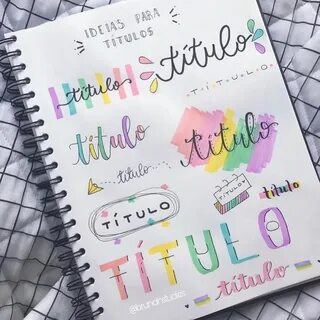 IDEIAS PARA
TÍTULOS
título
título
TÍTULO
título
título
título
TÍTULOS
título
TÍTULO
TÍTULO
título
@brunaristudies